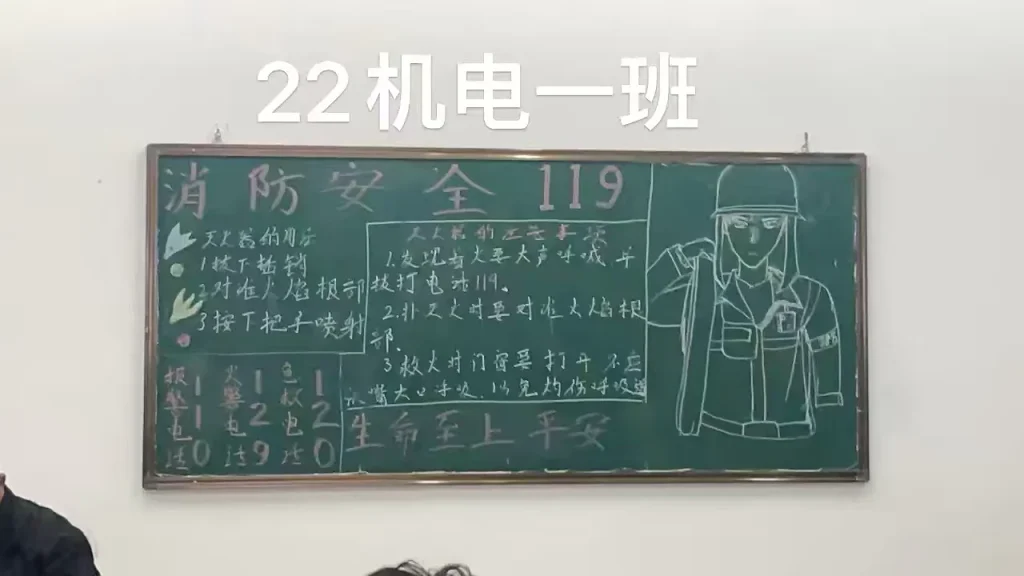 22机电一班
消防安全 119
灭火器的用法
1拔下插销
2对准火焰根部
3按下把手喷射
灭火器的注意事项
1.发现着火要大声呼喊并
拨打电话119。
2.扑灭火时要对准火焰根
部.
3.救火时门窗要打开 不应
嘴大口呼吸.以免灼伤呼吸道
报警电话 110
火警电话 129
急救电话 120
生命至上 平安